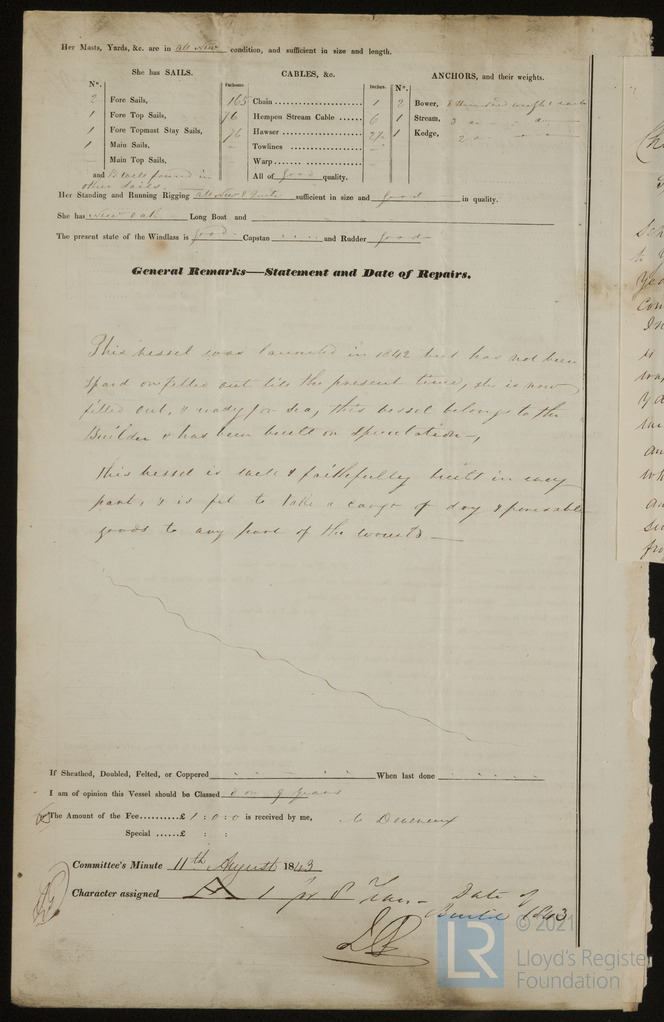 Her Masts, Yards, &c. are in all New condition, and sufficient in size and length.
She has SAILS.
CABLES, &c.
ANCHORS, and their weights.
N°.
Fathoms.
Inches.
N°.
2 Fore Sails, 165 Chain 1 2 Bower,
1 Fore Top Sails, 76 Hempen Stream Cable 6 1 Stream, 3
1 Fore Topmast Stay Sails, 76 Hawser 1 Kedge, 2
1 Main Sails, — Towlines —
— Main Top Sails, — Warp —
and is well found in All of good quality.
other sails.
Her Standing and Running Rigging all New & sufficient in size and good in quality.
She has New Oak Long Boat and
The present state of the Windlass is good Capstan and Rudder good
General Remarks—Statement and Date of Repairs.
This vessel was launched in 1842 but has not been
spard or fitted out till the present time, she is now
fitted out, & ready for sea, this vessel belongs to the
Builder & has been built on speculation—,
this vessel is well & faithfully built in every
part, & is fit to take a cargo of dry & perisable
goods to any part of the world —
If Sheathed, Doubled, Felted, or Coppered When last done
I am of opinion this Vessel should be Classed years
The Amount of the Fee £ 1 : 0 : 0 is received by me,
Special £ : :
Committee's Minute 11th August 1843
Character assigned A 1 for 8 Years – Date of
Build 1843
© 2021
LR
Lloyd's Register
Foundation